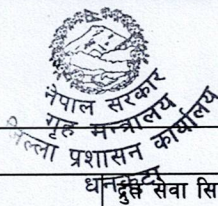 नेपाल सरकार
गृह मन्त्रालय
जिल्ला प्रशासन कार्यालय
धनकुटा
सेवा सि